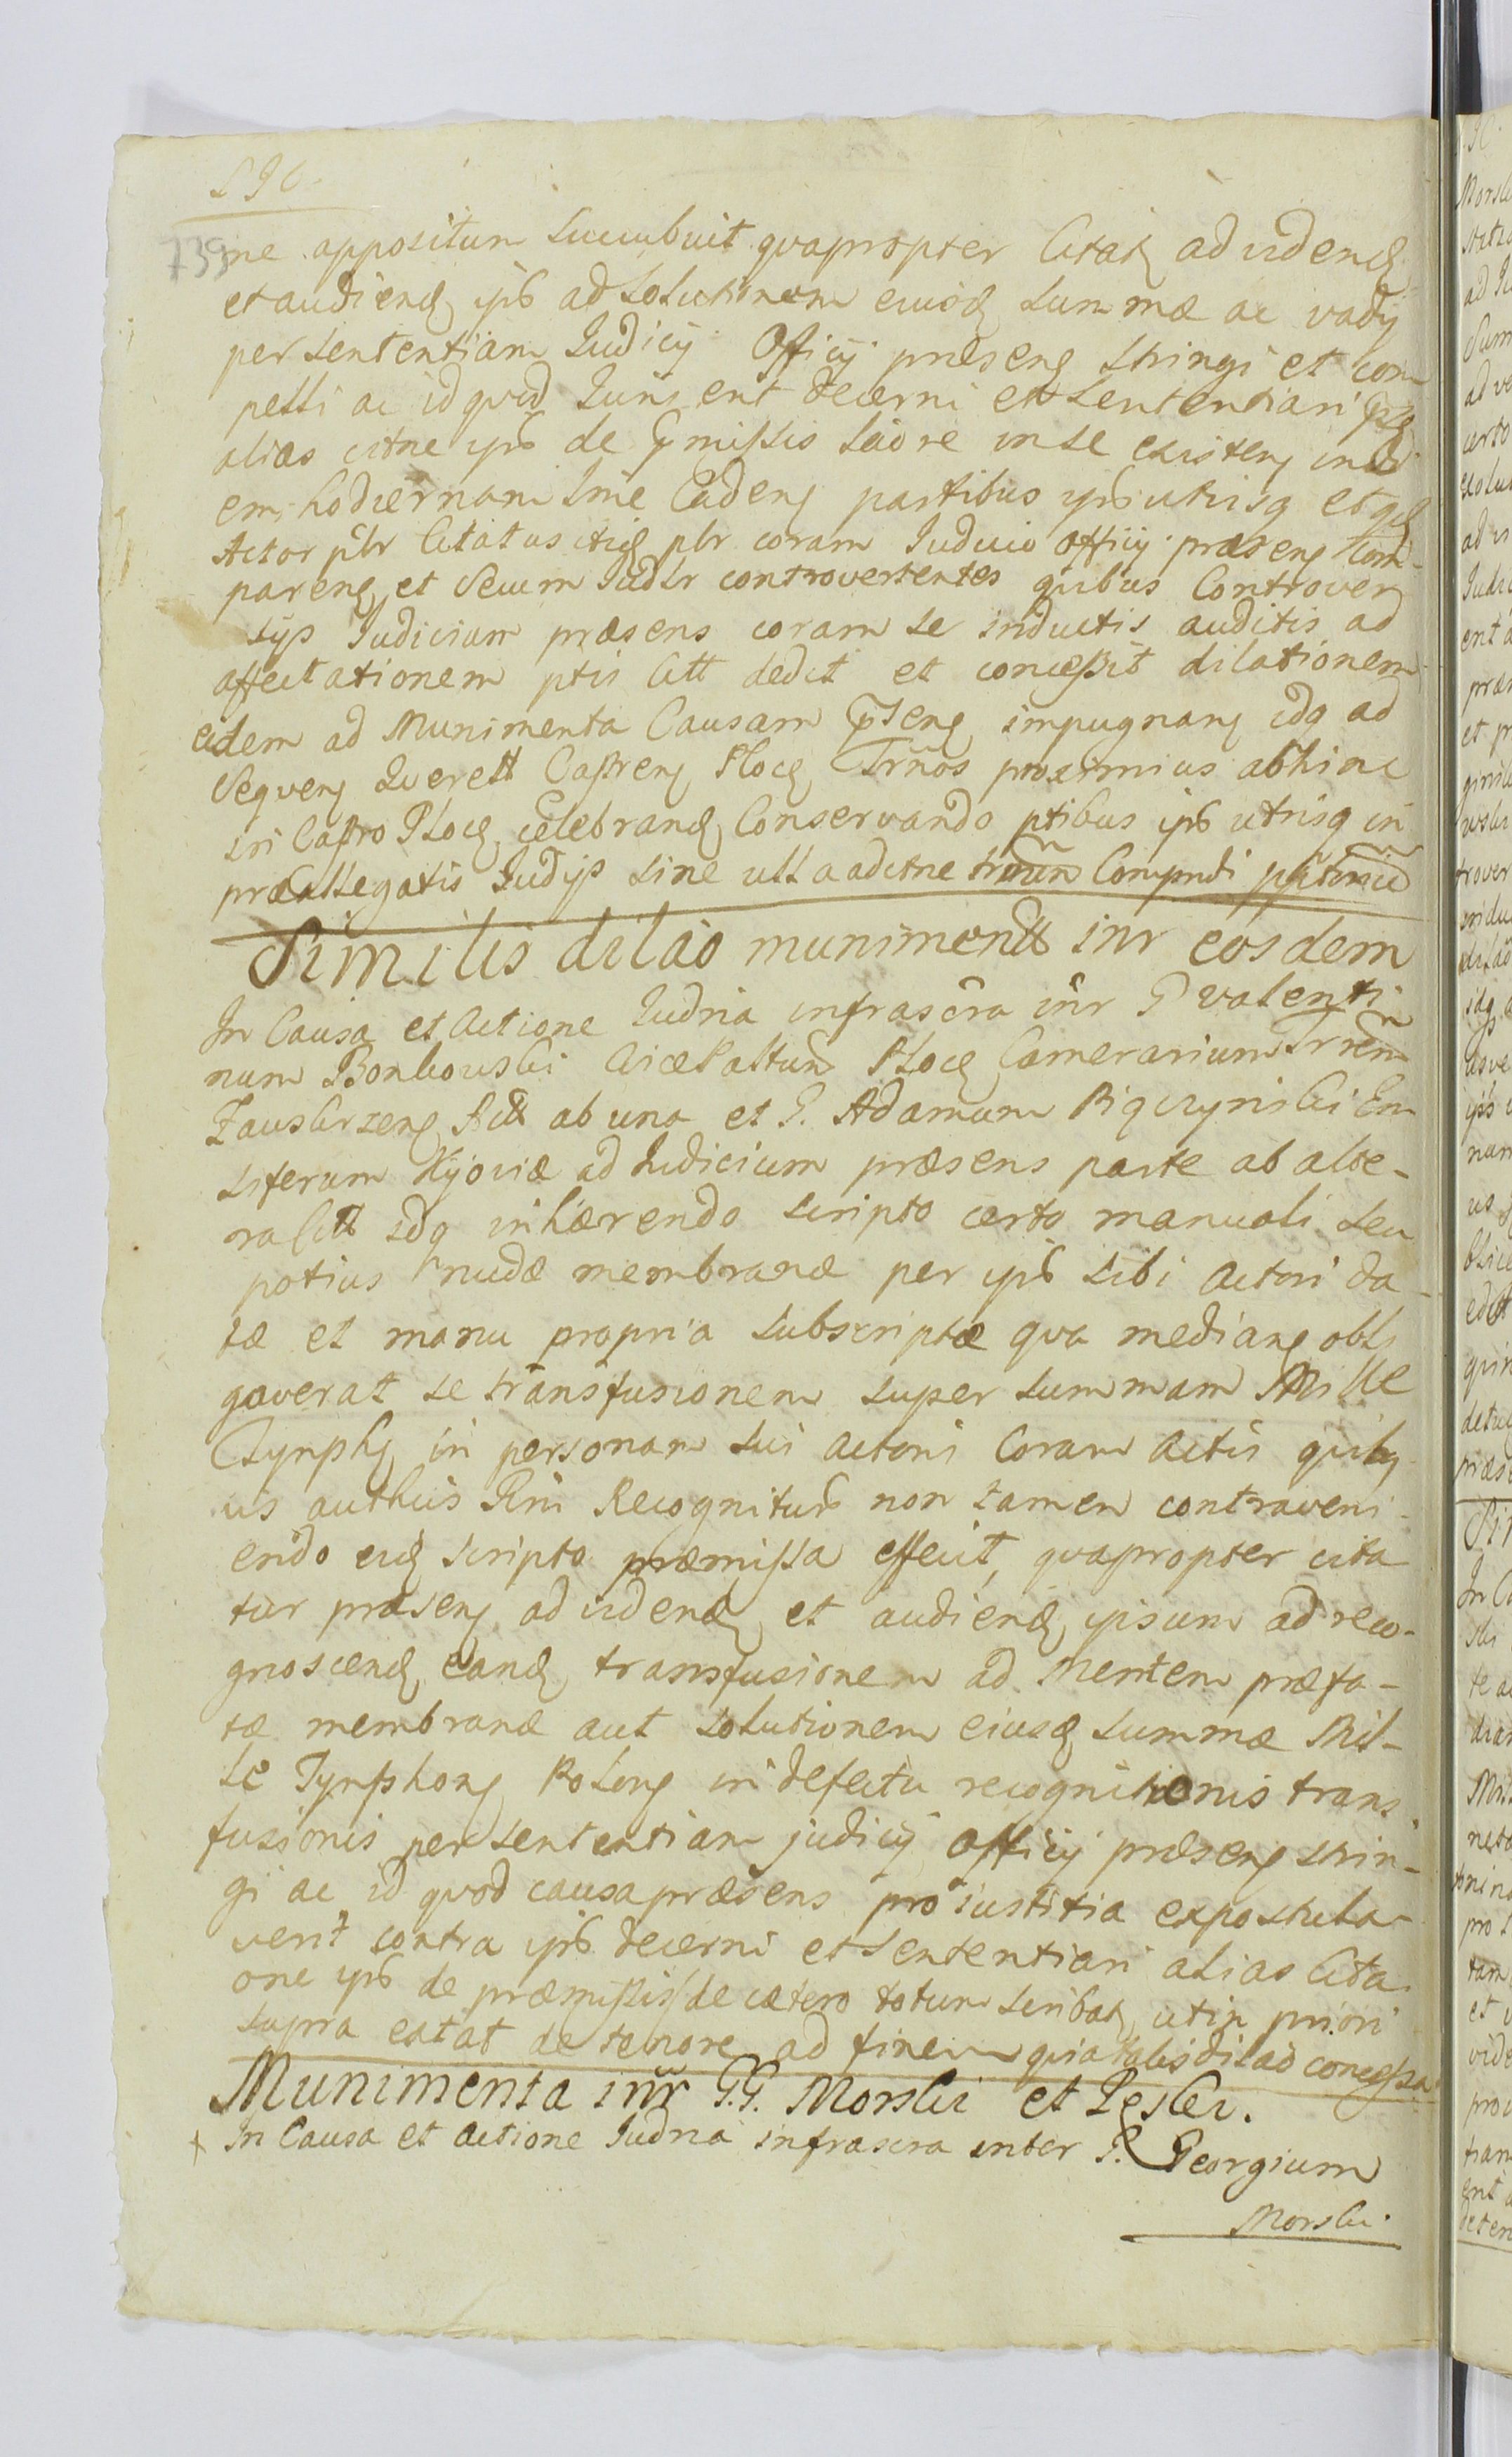 739
ne appositum succubuit quapropter Citatq ad videndq
et audiendq ips ad solutionem eiusdq summæ ac vadÿ
per sententiam Iudicÿ Officÿ præsenq stringi et com
pelli ac id quid Iuris erit decerni et sententiari
alias citne ips de pmissis laõre in se existenq in di
em hodiernam sine Cadenq partibus ips utrisq et qdq
Actor pbr Citatus itidq pbr coram Iudicio Officÿ præsenq Com-
parenq et secum Iudlr controvertentes quibus Controver
sÿs Iudicium præsens coram se inductis auditis ad
affectationem ptis Citt dedit et concessit dilationem
eidem ad Munimenta Causam psenq impugnanq idq ad
Sequenq Querell Castrenq Plocq Trnos proximius abhinc
in Castro Plocq celebrandq Conservando ptibus ips utrisq in
præallegatis Iudÿs sine ulla adcitne trnum Comprndi
Similis dilaõ munimentt inr eosdem
In Causa et Actione Iudria infrascra inr G Valenti
num Bonkowski Vicepaltum Plocq Camerarium Trrem
Zauskrzenq Actt ab una et G. Adamum Pigczynski En
siferum Kÿoviæ ad Iudicium præsens parte ab alte-
ra Citt idq inhærendo scripto certo manuali seu
potius nudæ membranæ per ips sibi Actori da-
tæ et manu propria subscriptæ qua medianq obli
gaverat se transfusionem super summam Mille
Tynphq in personam sui Actoris Coram Actis quibq
vis authcis Rni Recogniturũ non tamen contraveni-
endo eidq scripto præmissa effecit, quapropter cita
tur præsenq ad videndq et audiendq ipsum ad reco-
gnoscendq eandq transfusionem ad Mentem præfa-
tæ membranæ aut solutionem eiusdq summæ Mil-
le Tynphonq Polonq in defectu recognitionis trans
fusionis per sententiam judicÿ Officÿ præsenq strin-
gi ac id quod causa præsens pro iustitia expostula-
verit contra ips decerni et sententiari alias Cita-
one ips de præmissis de cætero totum scribatq uti in priori
supra extat de tenore ad finem quia talis dilaõ concessa
Munimenta inr G.G. Morski et Peski.
+ In Causa et Actione Iudria infrascra inter G. Georgium
Morski.